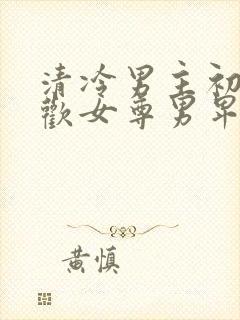 清冷男主初
歡女尊男卑
黃慎